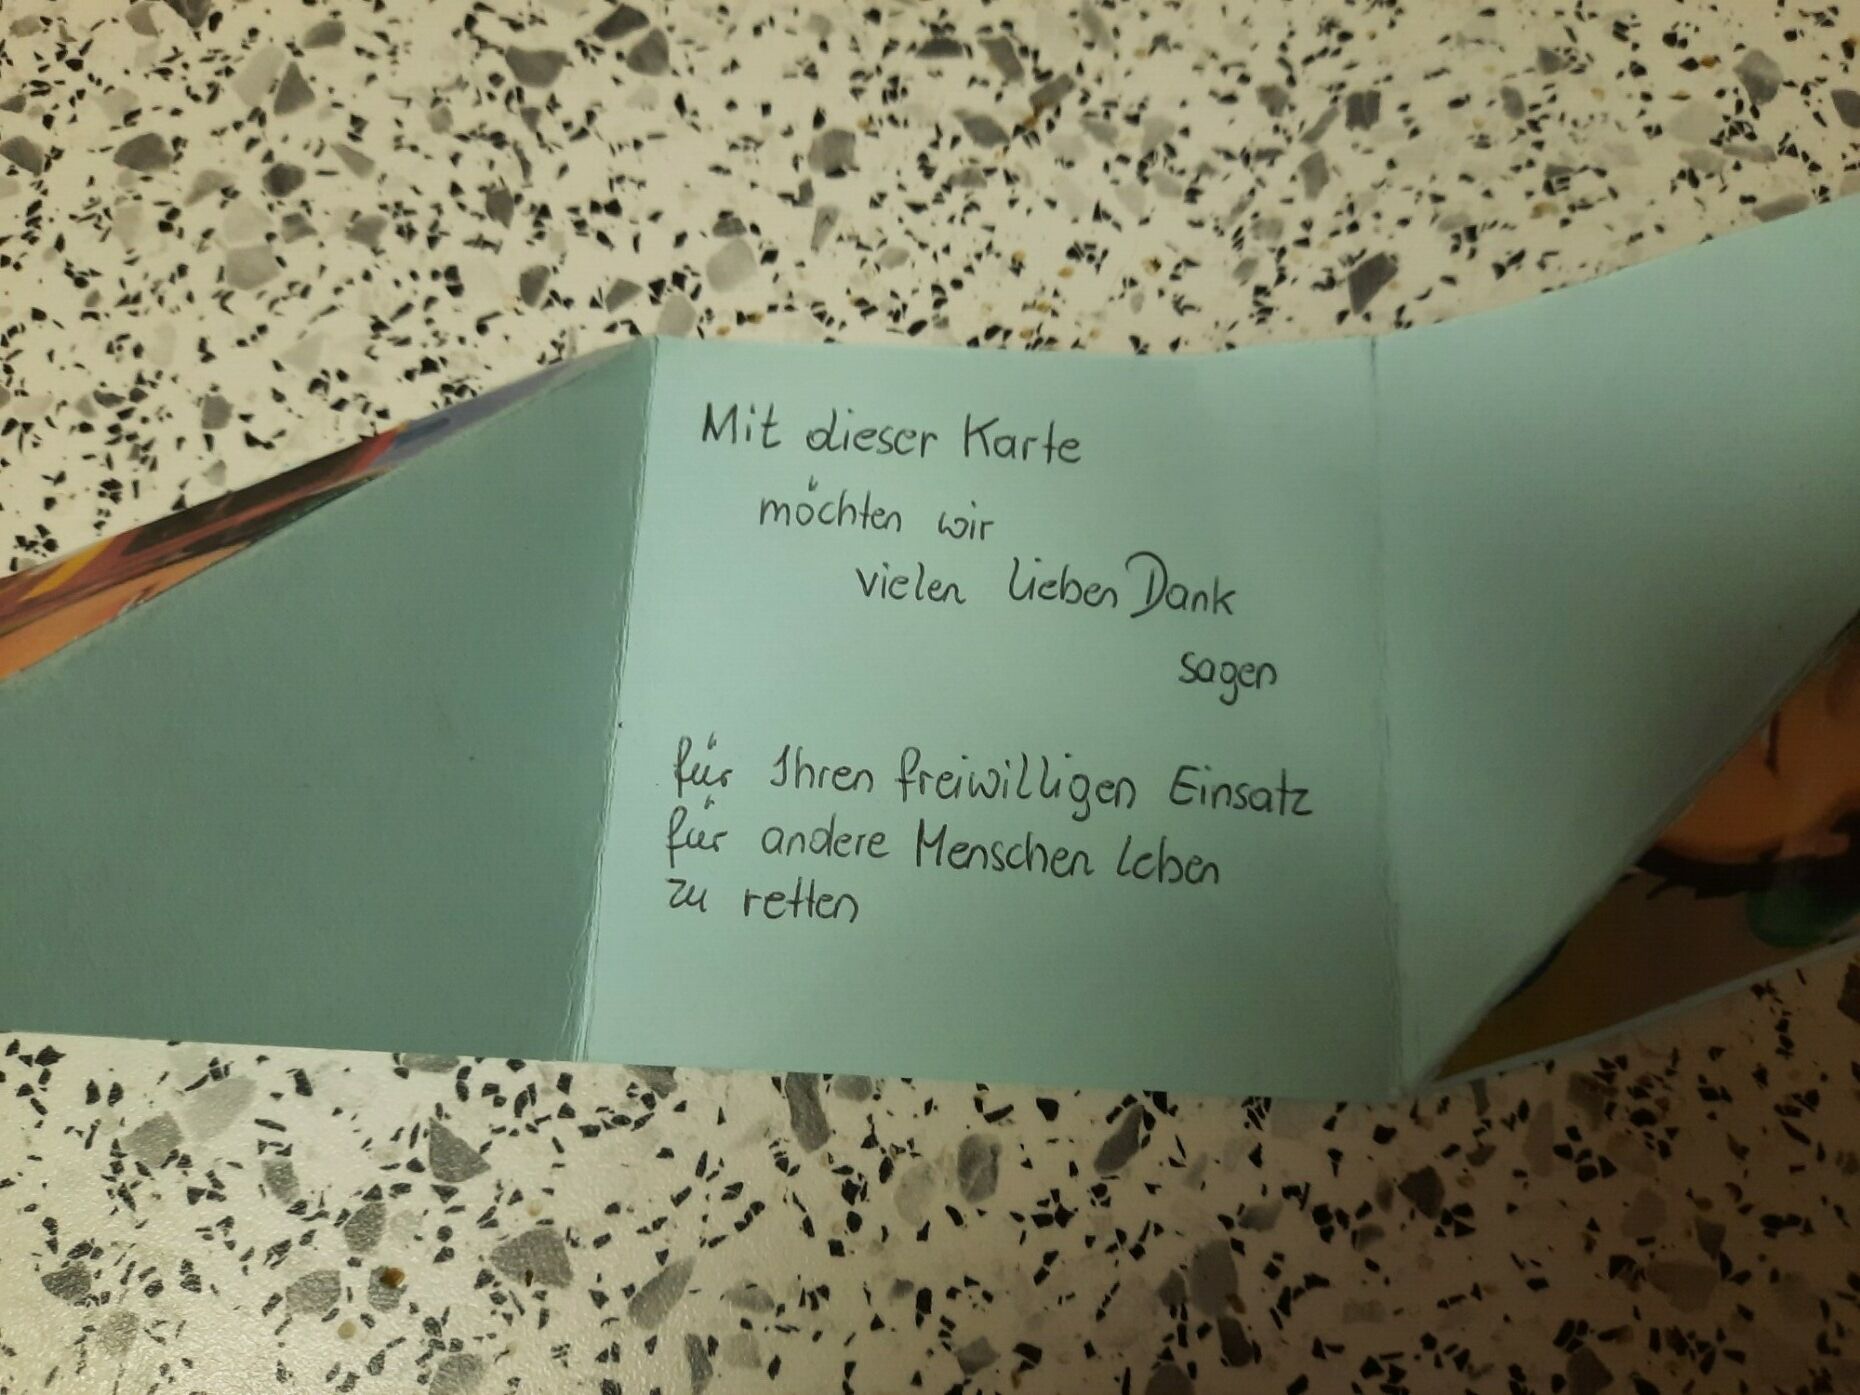 Mit dieser Karte
möchten wir
vielen lieben Dank
sagen
für Ihren freiwilligen Einsatz
für andere Menschen leben
zu retten